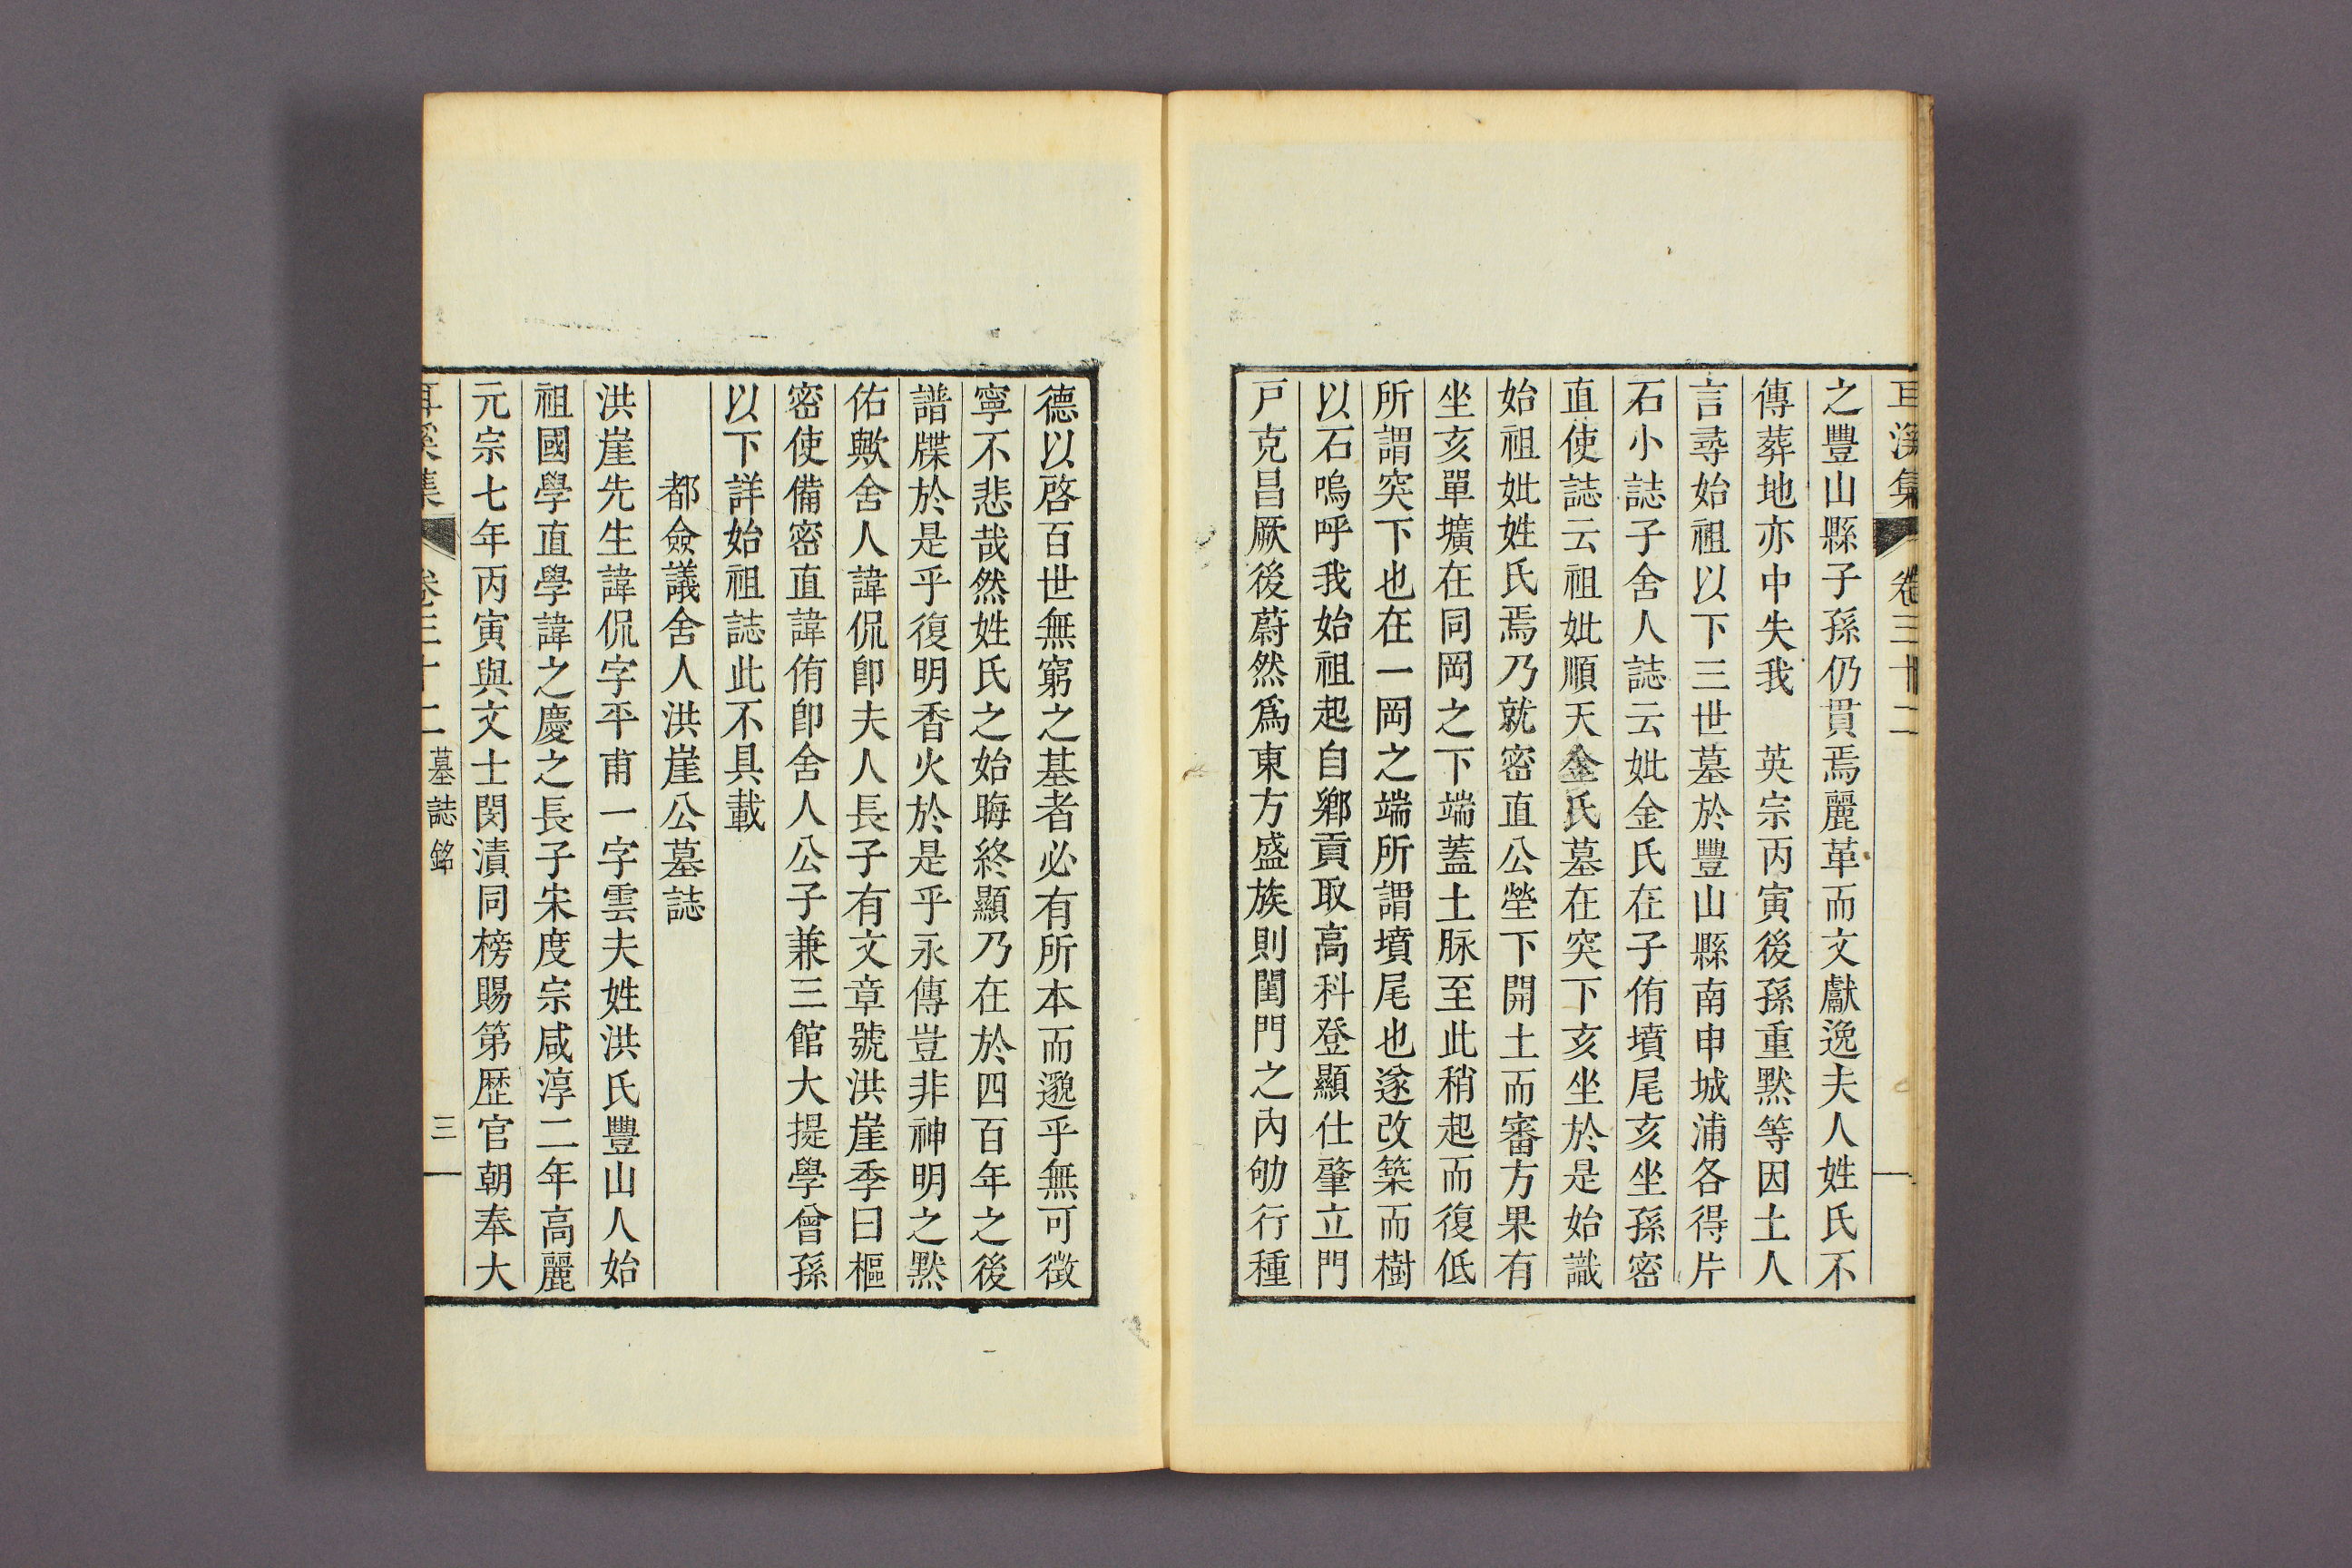 耳溪集 卷三十二
之豐山縣子孫仍貫焉麗革而文獻逸夫人姓氏不
傳葬地亦中失我 英宗丙寅後孫重黙等因土人
言尋始祖以下三世墓於豐山縣南申城浦各得片
石小誌子舍人誌云妣金氏在子侑墳尾亥坐孫密
直使誌云祖妣順天金氏墓在突下亥坐於是始識
始祖妣姓氏焉乃就密直公塋下開土而審方果有
坐亥單壙在同岡之下端蓋土脉至此稍起而復低
所謂突下也在一岡之端所謂墳尾也遂改築而樹
以石嗚呼我始祖起自鄉貢取高科登顯仕肇立門
戸克昌厥後蔚然爲東方盛族則閨門之內劬行種
德以啓百世無窮之基者必有所本而邈乎無可徵
寧不悲哉然姓氏之始晦終顯乃在於四百年之後
譜牒於是乎復明香火於是乎永傳豈非神明之黙
佑歟舍人諱侃卽夫人長子有文章號洪崖季曰樞
密使備密直諱侑卽舍人公子兼三館大提學曾孫
以下詳始祖誌此不具載
都僉議舍人洪崖公墓誌
洪崖先生諱侃字平甫一字雲夫姓洪氏豐山人始
祖國學直學諱之慶之長子宋度宗咸淳二年高麗
元宗七年丙寅與文士閔漬同榜賜第歷官朝奉大
耳溪集 卷三十二 墓誌銘 三